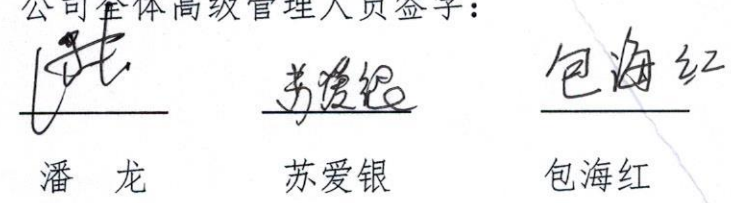 公司全体高级管理人员签字：
苏爱银 包海红
潘 龙 苏爱银 包海红